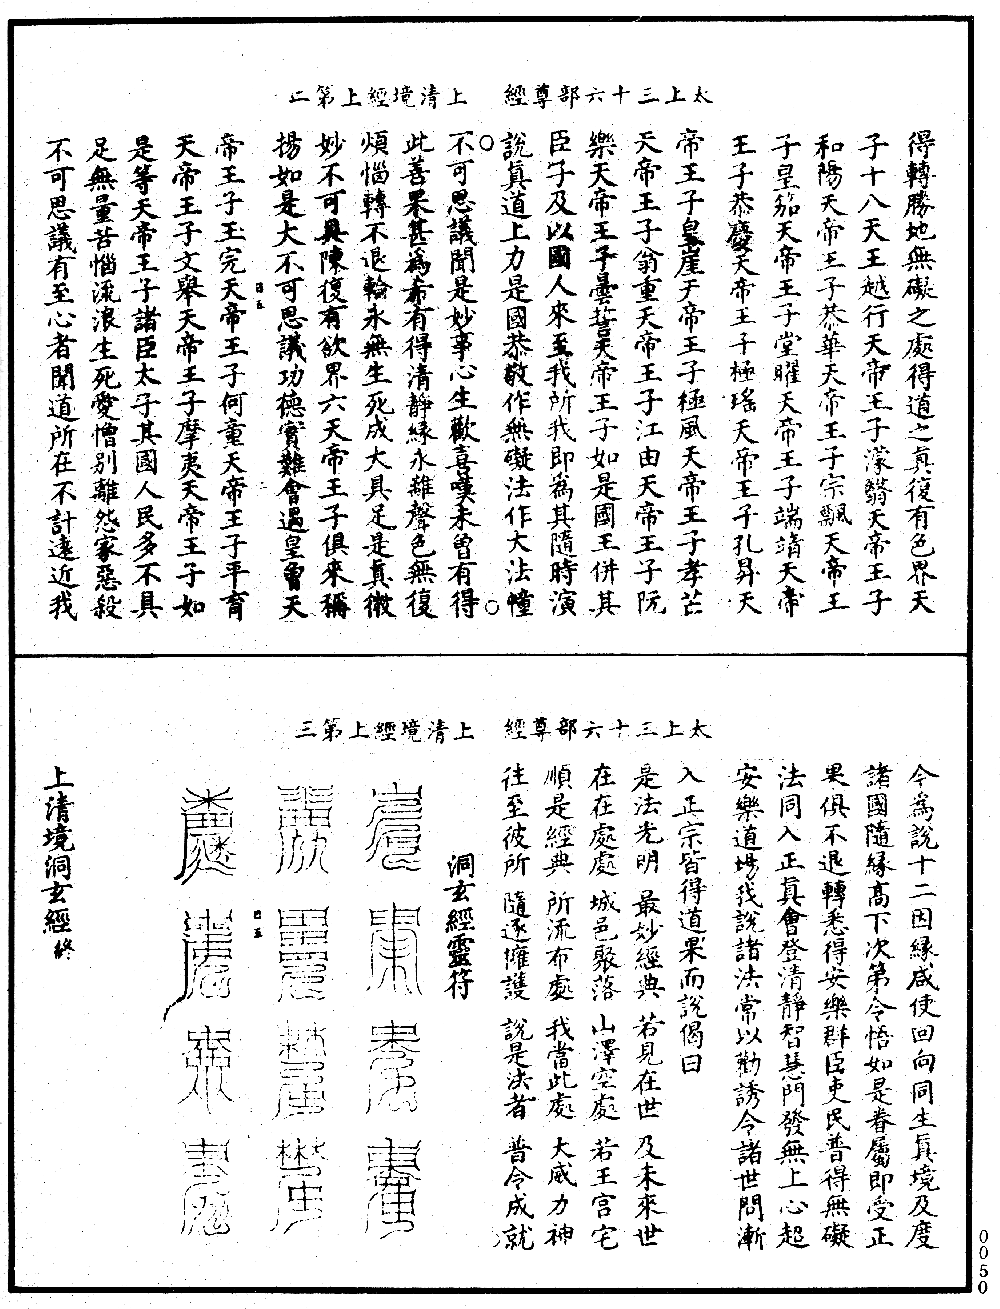 太上三十六部尊經　上清境經上第二
得轉勝地無礙之處得道之真復有色界天
子十八天王越行天帝王子濛翳天帝王子
和陽天帝王子恭華天帝王子宗飄天帝王
子皇笳天帝王子堂曜天帝王子端靖天帝
王子恭慶天帝王子極瑤天帝王子孔昇天
帝王子皇崖天帝王子極風天帝王子孝芒
天帝王子翁重天帝王子江由天帝王子阮
樂天帝王子曇誓天帝王子如是國王併其
臣子及以國人來至我所我即為其隨時演
說真道上力是國恭敬作無礙法作大法幢
不可思議聞是妙事心生歡喜嘆未曾有得
此善果甚為希有得清靜緣永離聲色無復
煩惱轉不退輪永無生死成大具足是真微
妙不可具陳復有欲界六天帝王子俱來稱
揚如是大不可思議功德實難會遇皇曾天
四五
帝王子玉完天帝王子何童天帝王子平育
天帝王子文舉天帝王子摩夷天帝王子如
是等天帝王子諸臣太子其國人民多不具
足無量苦惱流浪生死愛憎別離怨家惡殺
不可思議有至心者聞道所在不計遠近我
太上三十六部尊經　上清境經上第三
今為說十二因緣咸使回向同生真境及度
諸國隨緣高下次第令悟如是眷屬即受正
果俱不退轉悉得安樂群臣吏民普得無礙
法同入正真會登清靜智慧門發無上心超
安樂道場我說諸法常以勸誘令諸世間漸
入正宗皆得道果而說偈曰
是法光明　最妙經典　若見在世　及未來世
在在處處　城邑聚落　山澤空處　若王宮宅
順是經典　所流布處　我當此處　大威力神
往至彼所　隨逐擁護　說是法者　普令成就
洞玄經靈符
四五
上清境洞玄經終
0050